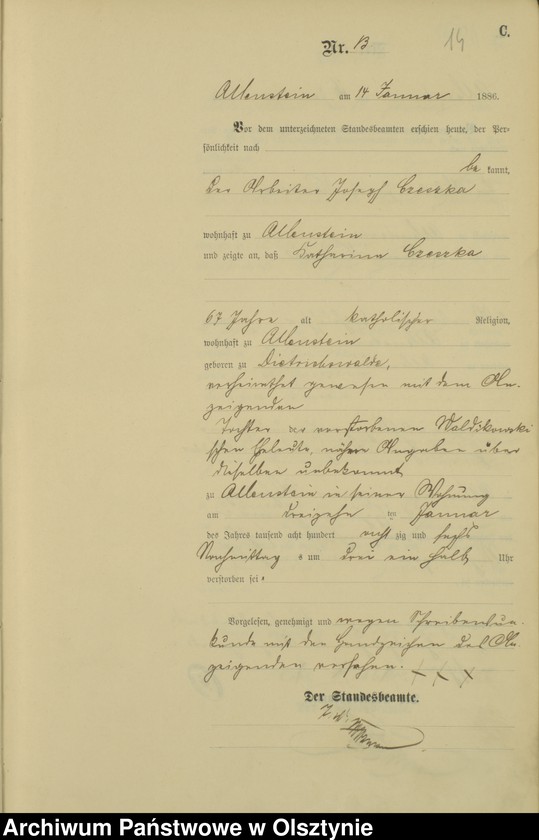 C.
14
Nr. 13
Allenstein am 14 Januar 1886.
Vor dem unterzeichneten Standesbeamten erschien heute, der Per-
sönlichkeit nach
be kannt,
der Arbeiter Joseph Czeszka
wohnhaft zu Allenstein
und zeigte an, daß Katharina Czeszka
67 Jahre alt katholischer Religion,
wohnhaft zu Allenstein
geboren zu Dietrichswalde,
verheirathet gewesen mit dem An-
zeigenden
Tochter der verstorbenen Waldikowski
schen Eheleute, nähere Angaben über
dieselben unbekannt
zu Allenstein in seiner Wohnung
am dreizehn ten Januar
des Jahres tausend acht hundert acht zig und sechs
Nachmittag s um drei ein halb Uhr
verstorben sei.
Vorgelesen, genehmigt und wegen Schreibensun-
kunde mit den Handzeichen des An-
zeigenden versehen. + + +
Der Standesbeamte.
Archiwum Państwowe w Olsztynie